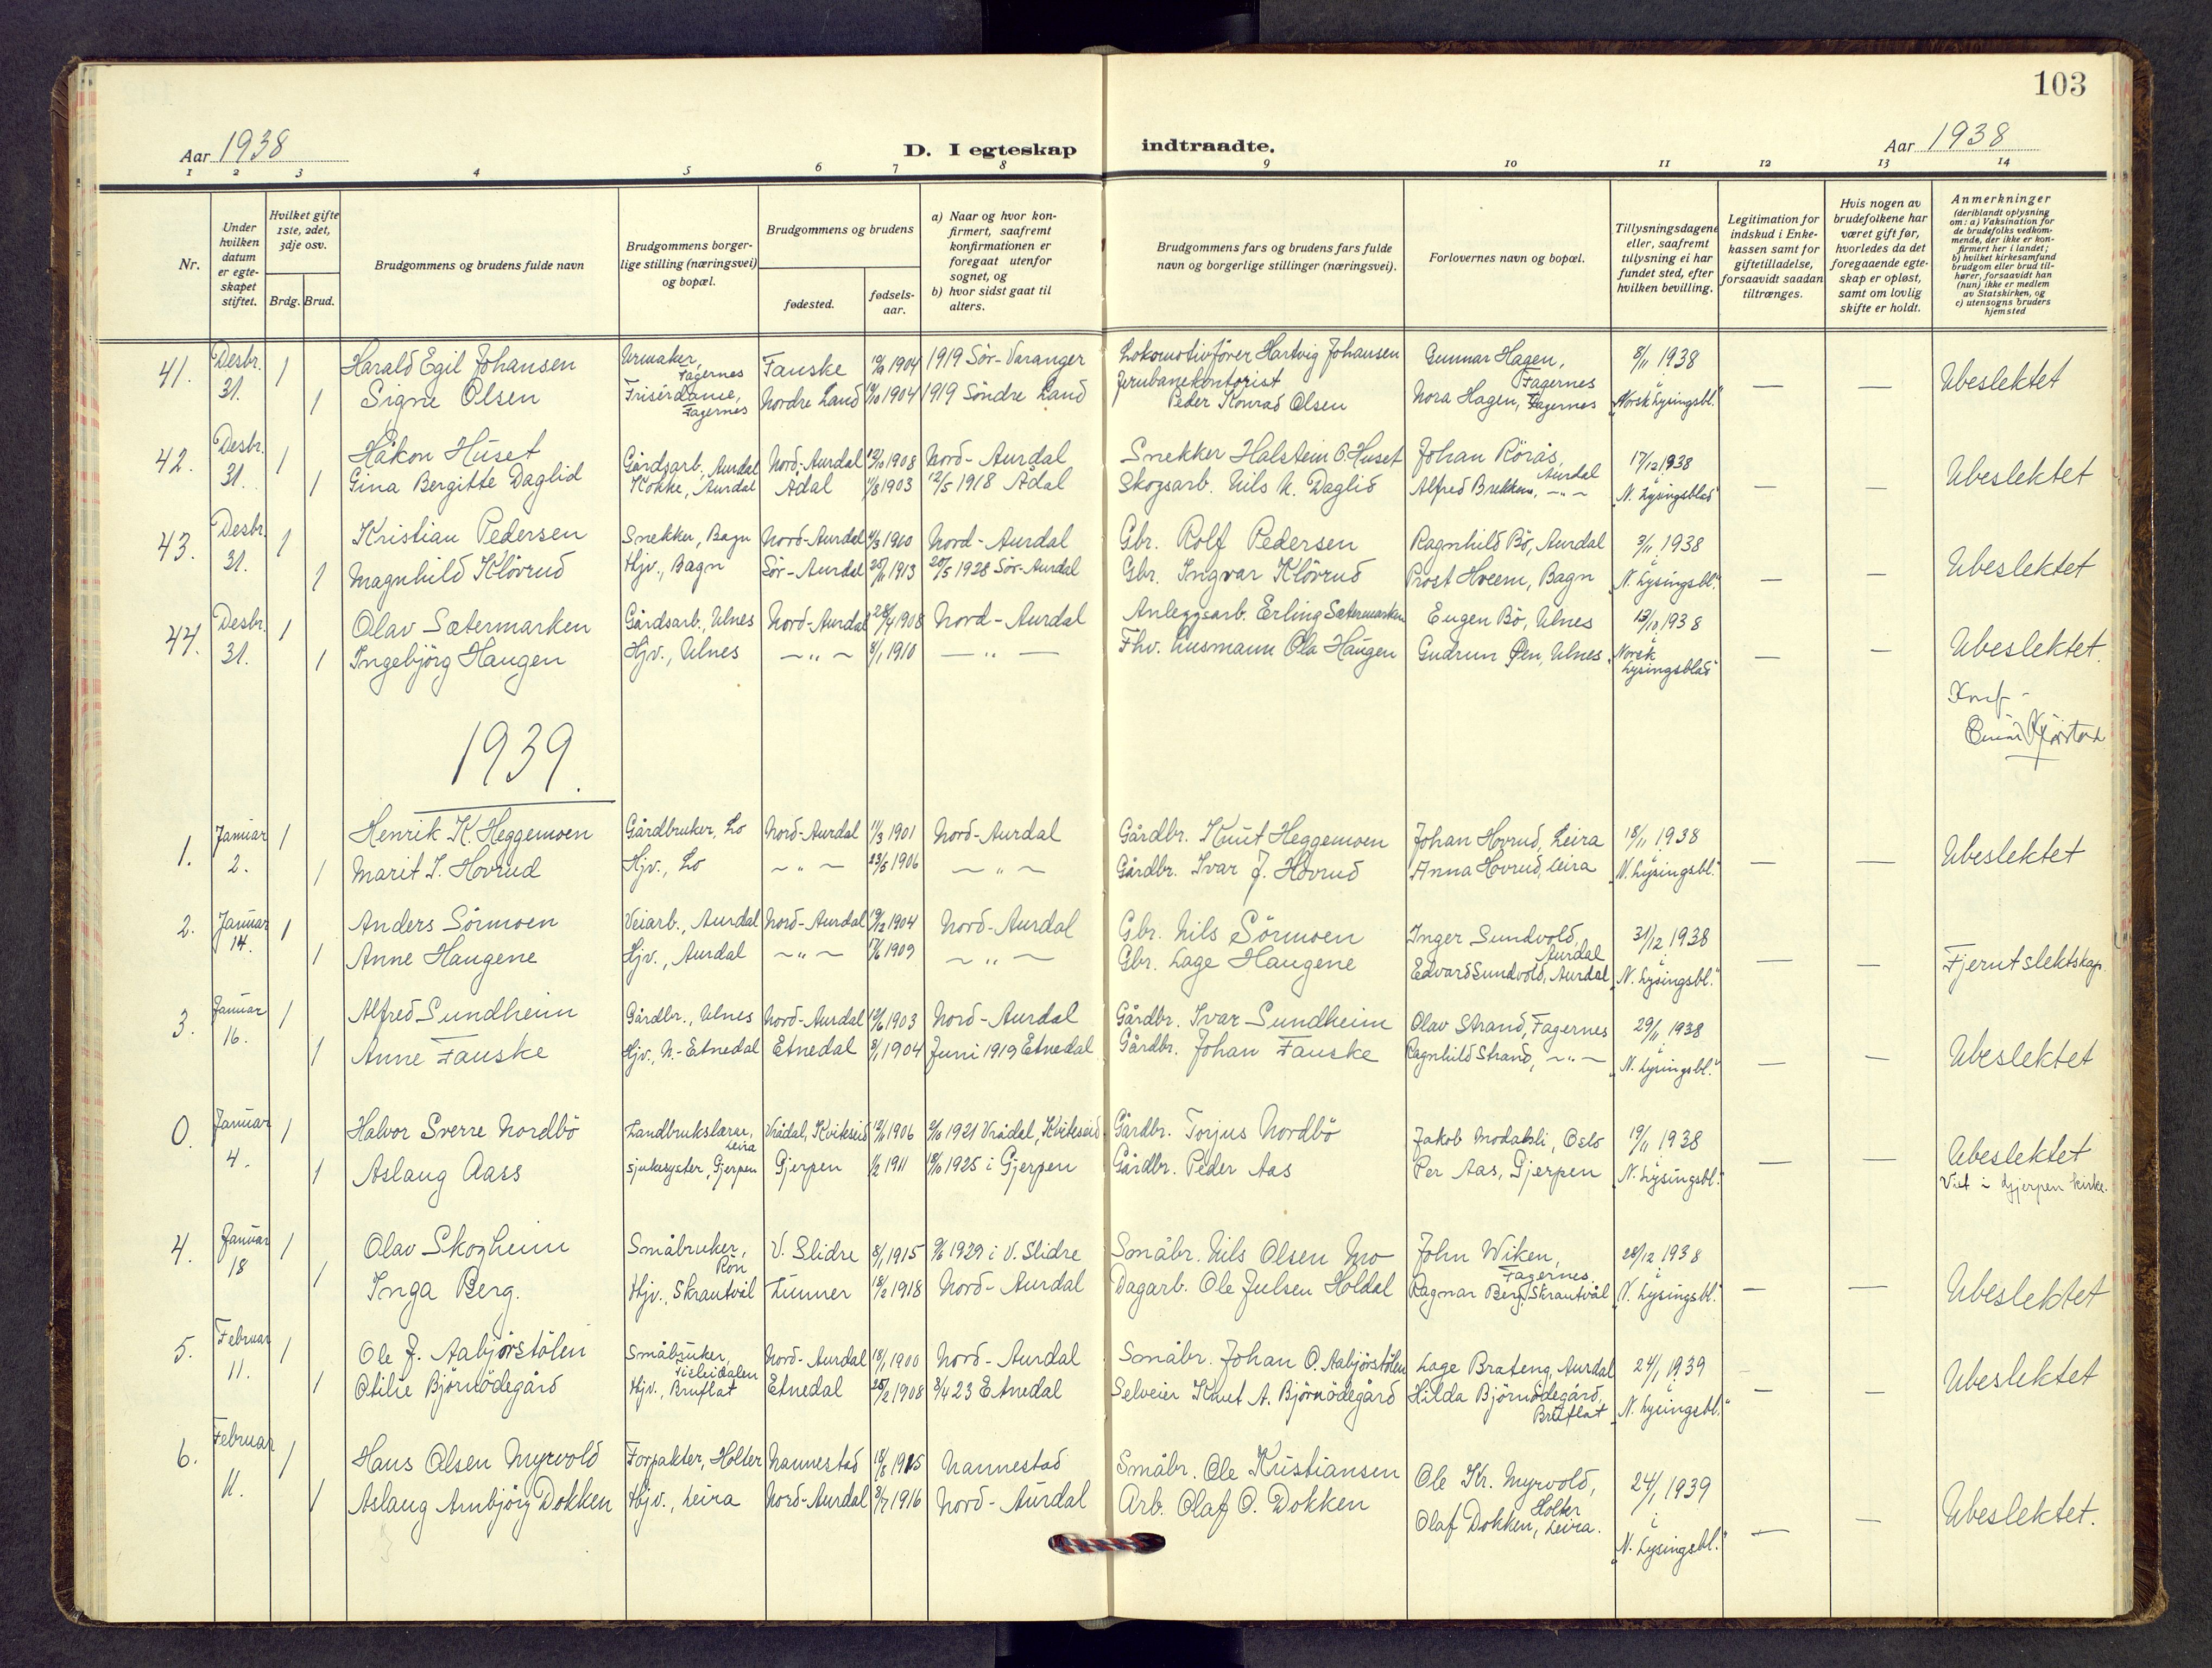 103
Aar 1938 D. I egteskap indtraadte. Aar 1938
1 2 3 4 5 6 7 8 9 10 11 12 13 14
Nr.
Under hvilken datum er egteskapet stiftet.
Hvilket gifte 1ste, 2det, 3dje osv.
Brdg. Brud.
Brudgommens og brudens fulde navn
Brudgommens borgerlige stilling (næringsvei) og bopæl.
Brudgommens og brudens
fødested.
fødselsaar.
a) Naar og hvor konfirmert, saafremt konfirmationen er foregaat utenfor sognet, og
b) hvor sidst gaat til alters.
Brudgommens fars og brudens fars fulde navn og borgerlige stillinger (næringsvei).
Forlovernes navn og bopæl.
Tillysningsdagene eller, saafremt tillysning ei har fundet sted, efter hvilken bevilling.
Legitimation for indskud i Enkekassen samt for giftetilladelse, forsaavidt saadan tiltrænges.
Hvis nogen av brudefolkene har været gift før, hvorledes da det foregaaende egteskap er opløst, samt om lovlig skifte er holdt.
Anmerkninger (deriblandt oplysning om: a) Vaksination for de brudefolks vedkommende, der ikke er konfirmert her i landet; b) hvilket kirkesamfund brudgom eller brud tilhører, forsaavidt han (hun) ikke er medlem av Statskirken, og c) utensogns bruders hjemsted
41. Desbr. 31. 1 Harald Egil Johansen Urmaker, Fagernes Fauske 1904 1919 Sör-Varanger Lokomotivförer Hartvig Johansen Gunnar Hagen, Fagernes 8/11 1938 i — — Ubeslektet
1 Signe Olsen Frisérdame, Fagernes Nordre Land 1904 1919 Söndre Land Jernbanekontorist Peder Konrad Olsen Nora Hagen, Fagernes "Norsk Lysingsbl."
42. Desbr. 31. 1 Håkon Huset Gårdsarb., Aurdal Nord-Aurdal 1908 Nord-Aurdal Snekker Halstein O. Huset Johan Rörås, Aurdal 17/12 1938 i — — Ubeslektet
1 Gina Bergitte Daglid Kokke, Aurdal Ådal 1903 12/5 1918 Ådal Skogsarb. Nils N. Daglid Alfred Brekken, —"— "N. Lysingsblad"
43. Desbr. 31. 1 Kristian Pedersen Snekker, Bagn Nord-Aurdal 1910 Nord-Aurdal Gbr. Rolf Pedersen Ragnhild Bö, Aurdal 3/11 1938 i — — Ubeslektet
1 Magnhild Klövrud Hjv., Bagn Sör-Aurdal 1913 20/5 1928 Sör-Aurdal Gbr. Ingvar Klövrud Prost Hveem, Bagn "N. Lysingsbl."
44. Desbr. 31. 1 Olav Sætermarken Gårdsarb., Ulnes Nord-Aurdal 28/4 1908 Nord-Aurdal Anleggsarb. Erling Sætermarken Eugen Bö, Ulnes 13/10 1938 i — — Ubeslektet.
1 Ingebjörg Haugen Hjv., Ulnes —"— 8/1 1910 —"— Fhv. husmann Ola Haugen Gudrun Öen, Ulnes "Norsk Lysingsblad"
1939.
1. Januar 2. 1 Henrik K. Heggemoen Gårdbruker, Lo Nord-Aurdal 11/3 1901 Nord-Aurdal Gårdbr. Knut Heggemoen Johan Hovrud, Leira 18/11 1938 i — — Ubeslektet
1 Marit I. Hovrud Hjv., Lo —"— 23/5 1906 —"— Gårdbr. Ivar J. Hovrud Anna Hovrud, Leira "N. Lysingsbl."
2. Januar 14. 1 Anders Sörmoen Veiarb., Aurdal Nord-Aurdal 19/12 1904 Nord-Aurdal Gbr. Nils Sörmoen Inger Sundvold, Aurdal 31/12 1938 i — — Fjernt slektskap
1 Anne Haugene Hjv., Aurdal —"— 1909 —"— Gbr. Lage Haugene Edvard Sundvold, Aurdal "N. Lysingsbl."
3. Januar 16. 1 Alfred Sundheim Gårdbr., Ulnes Nord-Aurdal 1903 Nord-Aurdal Gårdbr. Ivar Sundheim Olav Strand, Fagernes 29/11 1938 i — — Ubeslektet
1 Anne Fauske Hjv., N.-Etnedal Etnedal 1904 Juni 1919 Etnedal Gårdbr. Johan Fauske Ragnhild Strand, —"— "N. Lysingsbl."
0. Januar 4. 1 Halvor Sverre Nordbö Landbrukslærer, Leira Vrådal, Kviteseid 1906 1921 Vrådal, Kviteseid Gårdbr. Torjus Nordbö Jakob Modalsli, Oslo 19/11 1938 i — — Ubeslektet
1 Aslaug Aass sjukesyster, Gjerpen Gjerpen 1/2 1911 18/10 1925 i Gjerpen Gårdbr. Peder Aas Per Aas, Gjerpen "N. Lysingsbl." Viet i Gjerpen kirke.
4. Januar 18 1 Olav Skogheim Småbruker, Rön V. Slidre 8/1 1915 1929 i V. Slidre Småbr. Nils Olsen Mo John Wiken, Fagernes 28/12 1938 i — — Ubeslektet
1 Inga Berg. Hjv., Skrautvål Lunner 18/2 1918 Nord-Aurdal Dagarb. Ole Julsen Holdal Ragnar Berg, Skrautvål "N. Lysingsbl."
5. Februar 11. 1 Ole J. Aabjörstölen Småbruker, Tisleidalen Nord-Aurdal 18/1 1900 Nord-Aurdal Småbr. Johan O. Aabjörstölen Lage Brateng, Aurdal 24/1 1939 i — — Ubeslektet
1 Otilie Björnödegård Hjv., Bruflat Etnedal 25/2 1908 8/4 23 Etnedal Selveier Knut A. Björnödegård Hilda Björnödegård, Bruflat "N. Lysingsbl."
6. Februar 11. 1 Hans Olsen Myrvold Forpakter, Holter Nannestad 1915 Nannestad Småbr. Ole Kristiansen Ole Kr. Myrvold, Holter 24/1 1939 i — — Ubeslektet.
1 Aslaug Arnbjörg Dokken Hjv., Leira Nord-Aurdal 1916 Nord-Aurdal Arb. Olaf O. Dokken Olaf Dokken, Leira. "N. Lysingsbl."